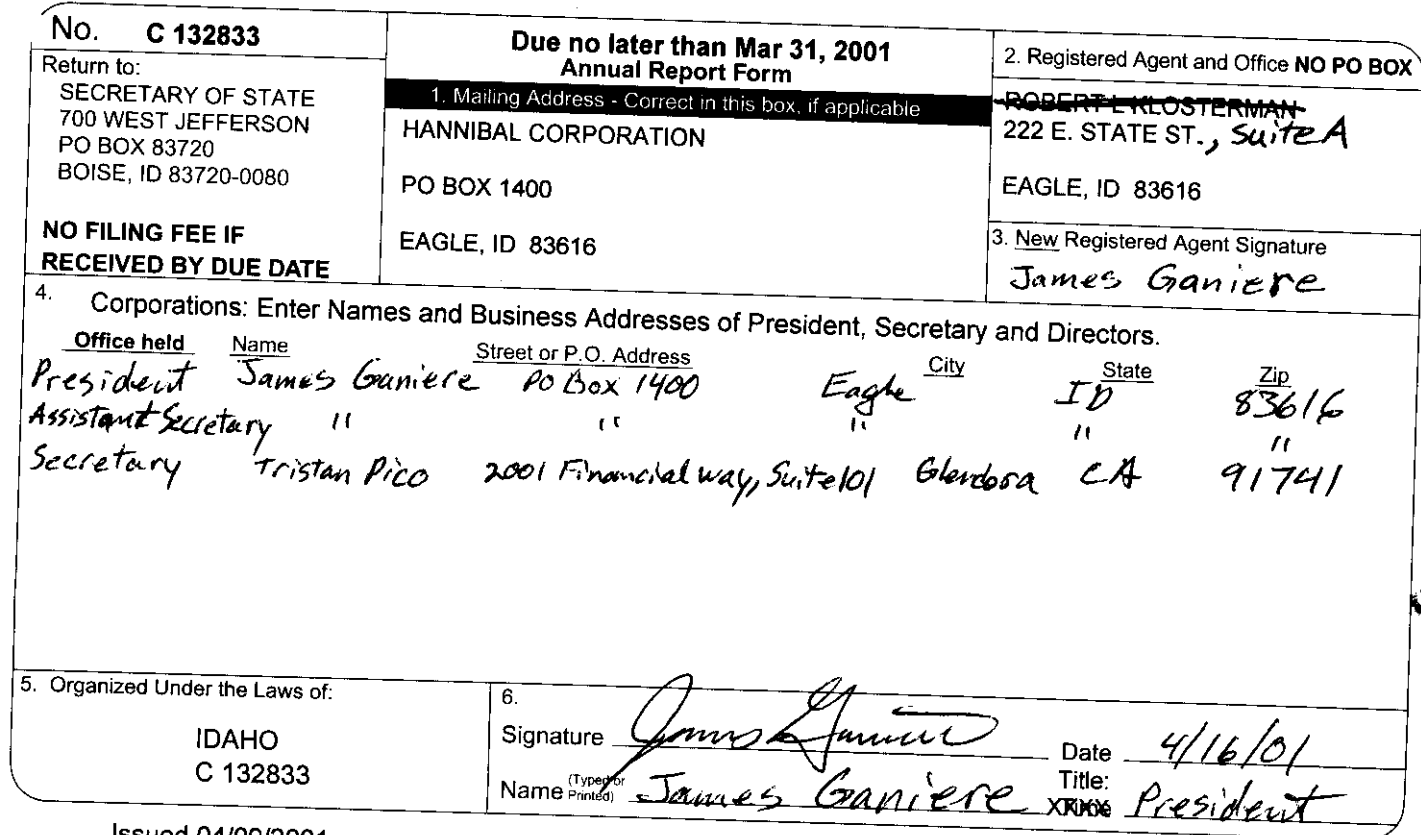 No. C 132833
Return to:
SECRETARY OF STATE
700 WEST JEFFERSON
PO BOX 83720
BOISE, ID 83720-0080
NO FILING FEE IF
RECEIVED BY DUE DATE
Due no later than Mar 31, 2001
Annual Report Form
1. Mailing Address - Correct in this box, if applicable
HANNIBAL CORPORATION
PO BOX 1400
EAGLE, ID 83616
2. Registered Agent and Office NO PO BOX
ROBERT L KLOSTERMAN
222 E. STATE ST., Suite A
EAGLE, ID 83616
3. New Registered Agent Signature
James Ganiere
4. Corporations: Enter Names and Business Addresses of President, Secretary and Directors.
Office held Name Street or P.O. Address City State Zip
President James Ganiere PO Box 1400 Eagle ID 83616
Assistant Secretary " " " " "
Secretary Tristan Pico 2001 Financial way, Suite 101 Glendora CA 91741
5. Organized Under the Laws of:
IDAHO
C 132833
6.
Signature James Ganiere Date 4/16/01
Name (Typed or Printed) James Ganiere Title: President